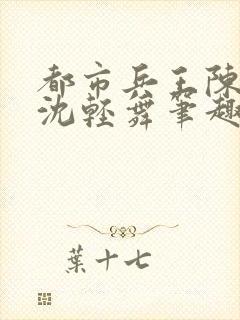 都市兵王陳
沈輕舞筆趣
葉十七